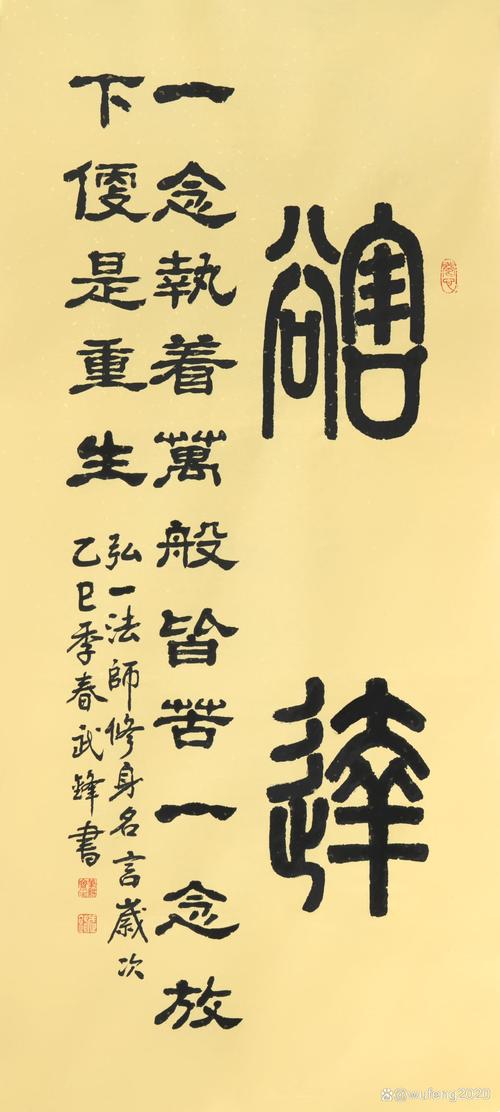 豁達
一念執着萬般皆苦一念放
下便是重生
弘一法師修身名言歲次
乙巳季春武鋒書
@wufeng2020